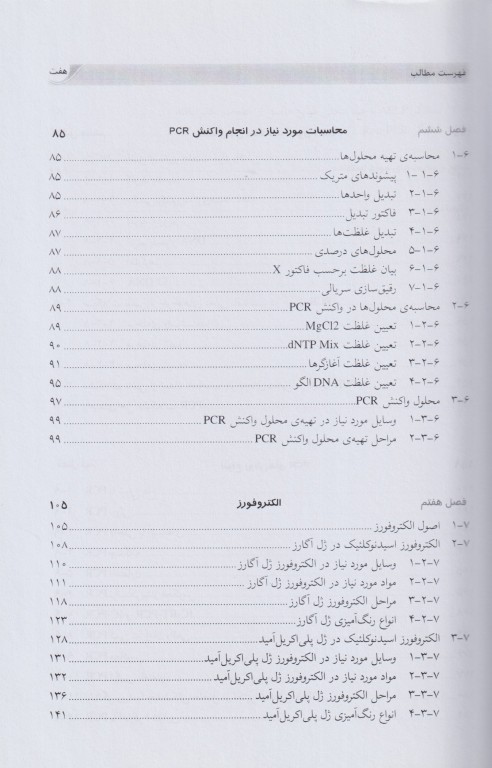 فهرست مطالب هفت
فصل ششم محاسبات مورد نیاز در انجام واکنش PCR ۸۵
۶-۱ محاسبه‌ی تهیه محلول‌ها ۸۵
۶-۱-۱ پیشوندهای متریک ۸۵
۶-۱-۲ تبدیل واحدها ۸۵
۶-۱-۳ فاکتور تبدیل ۸۶
۶-۱-۴ تبدیل غلظت‌ها ۸۷
۶-۱-۵ محلول‌های درصدی ۸۷
۶-۱-۶ بیان غلظت برحسب فاکتور X ۸۸
۶-۱-۷ رقیق‌سازی سریالی ۸۸
۶-۲ محاسبه‌ی محلول‌ها در واکنش PCR ۸۹
۶-۲-۱ تعیین غلظت MgCl2 ۸۹
۶-۲-۲ تعیین غلظت dNTP Mix ۹۰
۶-۲-۳ تعیین غلظت آغازگرها ۹۱
۶-۲-۴ تعیین غلظت DNA الگو ۹۵
۶-۳ محلول واکنش PCR ۹۷
۶-۳-۱ وسایل مورد نیاز در تهیه‌ی محلول واکنش PCR ۹۹
۶-۳-۲ مراحل تهیه‌ی محلول واکنش PCR ۹۹
فصل هفتم الکتروفورز ۱۰۵
۷-۱ اصول الکتروفورز ۱۰۵
۷-۲ الکتروفورز اسیدنوکلئیک در ژل آگارز ۱۰۸
۷-۲-۱ وسایل مورد نیاز در الکتروفورز ژل آگارز ۱۱۰
۷-۲-۲ مواد مورد نیاز در الکتروفورز ژل آگارز ۱۱۱
۷-۲-۳ مراحل الکتروفورز ژل آگارز ۱۱۸
۷-۲-۴ انواع رنگ‌آمیزی ژل آگارز ۱۲۳
۷-۳ الکتروفورز اسیدنوکلئیک در ژل پلی‌اکریل‌آمید ۱۲۸
۷-۳-۱ وسایل مورد نیاز در الکتروفورز ژل پلی‌اکریل‌آمید ۱۳۱
۷-۳-۲ مواد مورد نیاز در الکتروفورز ژل پلی‌اکریل‌آمید ۱۳۲
۷-۳-۳ مراحل الکتروفورز ژل پلی‌اکریل‌آمید ۱۳۶
۷-۳-۴ انواع رنگ‌آمیزی ژل پلی‌اکریل‌آمید ۱۴۱